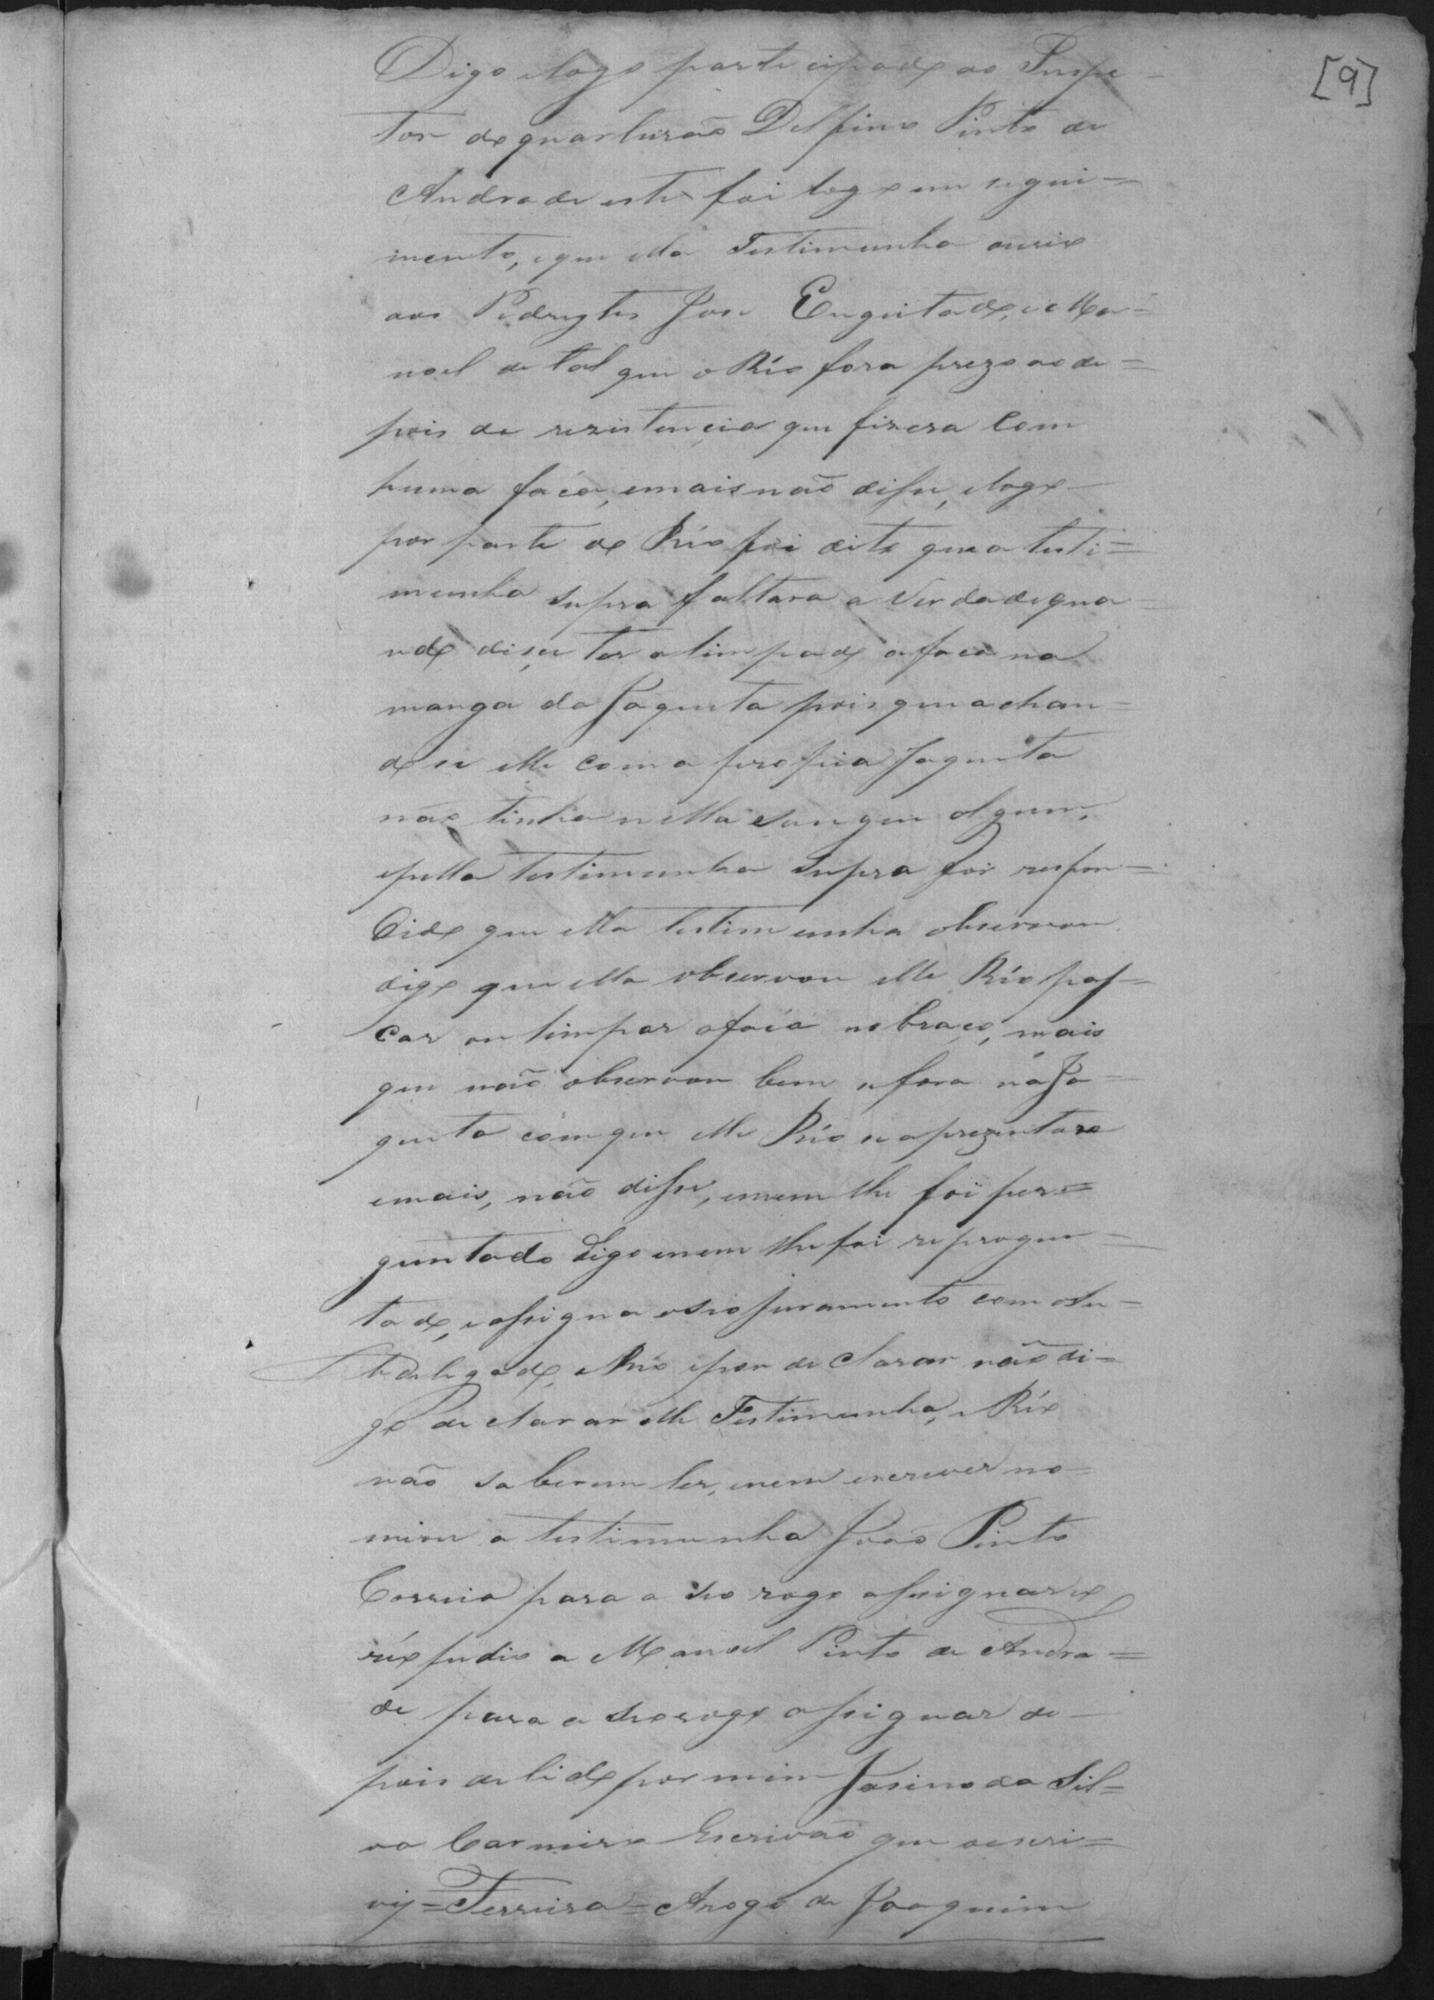 [9]
Digo e logo participado ao Inspe-
tor de quarteirão Delfino Pinto de
Andrade este foi logo em segui=
mento, e que ella Testimunha ouvio
aos Pedrestes José Engeitado, e Ma=
noel de tal que o Réo fora prezo ao de=
pois de rezistencia que fizera com
huma fáca, e mais não disse, e logo
por parte do Réo foi dito que a testi=
munha supra faltara a verdade qua=
ndo diçe ter alimpado a faca na
manga da Jaqueta pois que achan=
do se elle com a propria Jaqueta
não tinha nella sangue algum,
e pella testimunha supra foi respon=
dido que ella testimunha observou
digo que ella observou elle Réo pas=
car ou limpar a fáca no braço, mais
que não observou bem se fora na Ja=
queta com que elle Réo se aprezentava
e mais, não disse, e nem lhe foi per=
guntado digo e nem lhe foi reprogun=
tado, e assigna o seo juramento com o Su=
bdelegado, e Réo e por declarar não di=
go declarar elle Testimunha, e Réo
não saberem ler, e nem escrever no=
miou a testimunha João Pinto
Correia para a seo rogo assignar e o
réo pedio a Manoel Pinto de Andra=
de para a seo rogo assignar de=
pois de lido por mim Jasino da Sil=
va Carneiro Escrivão que o escri=
vy = Ferreira = Arogo de Joaquim